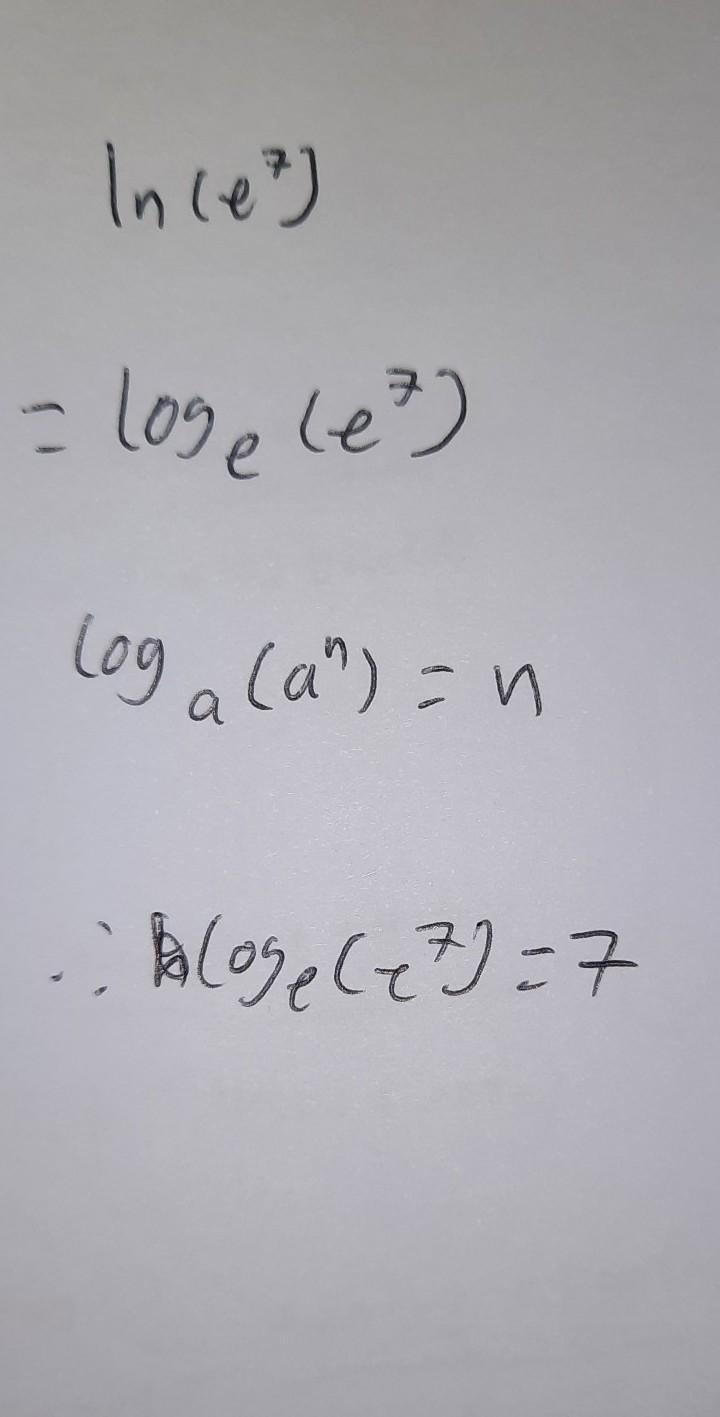 ln(e⁷)
= logₑ(e⁷)
logₐ(aⁿ) = n
∴ logₑ(e⁷) = 7